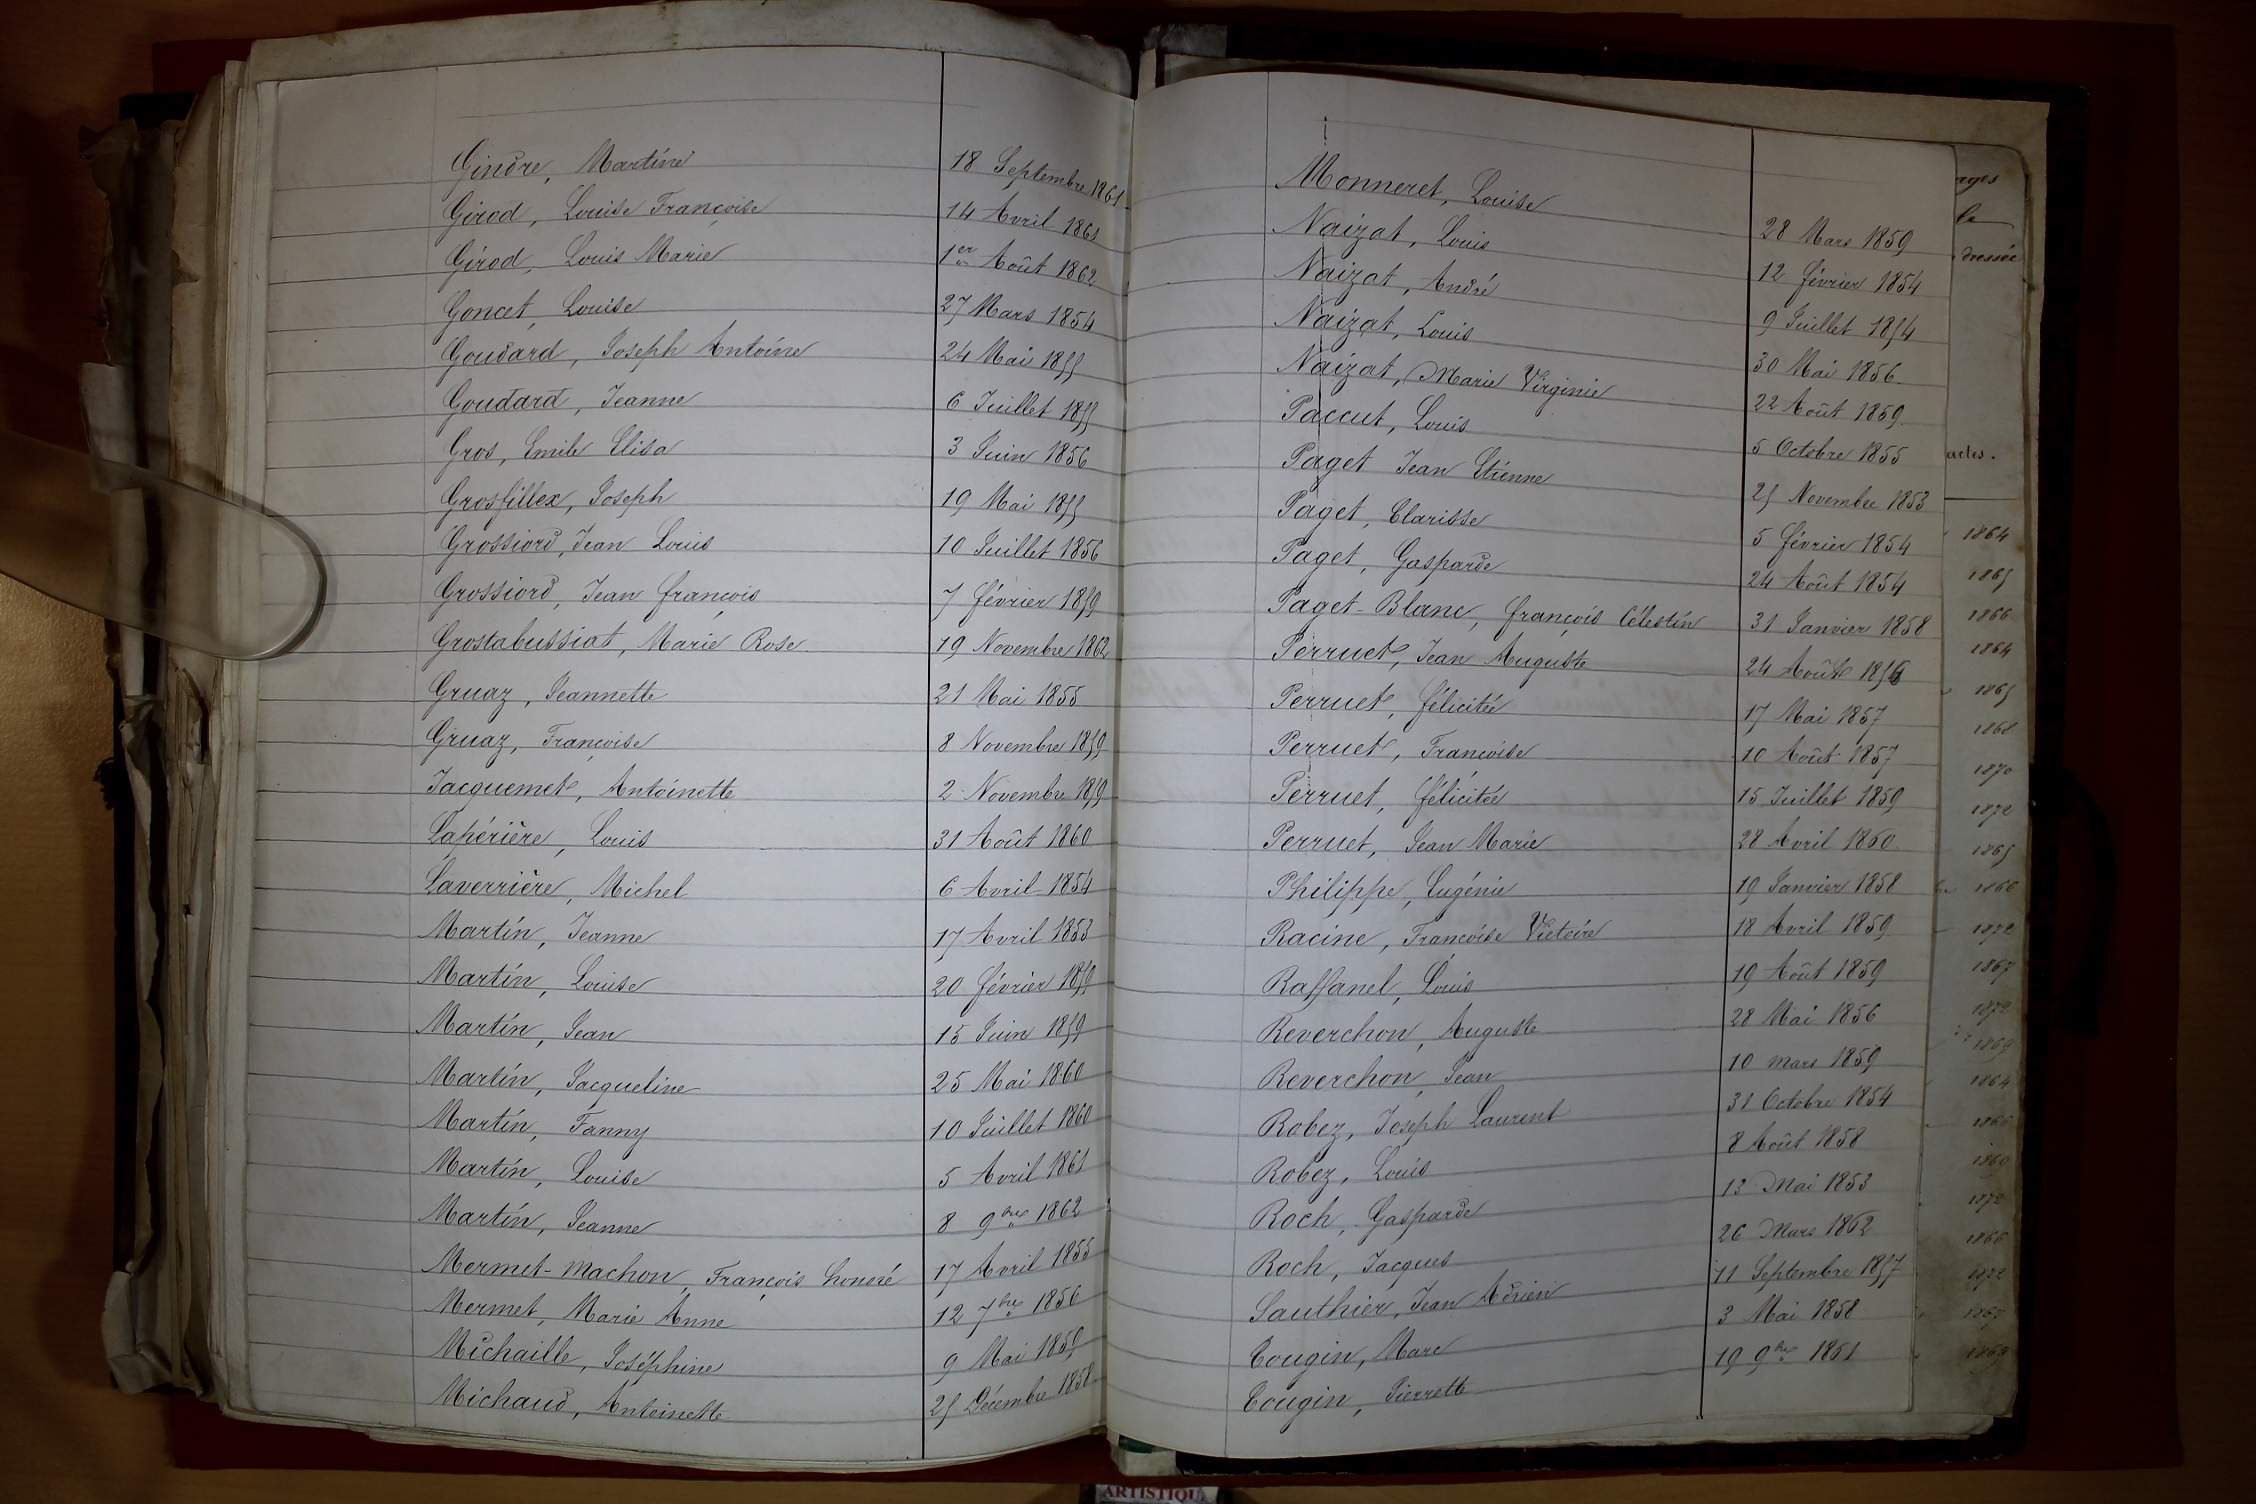 Gindre, Martine 18 Septembre 1861
Girod, Louise Françoise 14 Avril 1861
Girod, Louis Marie 1er Août 1862
Goncet, Louise 27 Mars 1854
Goudard, Joseph Antoine 24 Mai 1855
Goudard, Jeanne 6 Juillet 1855
Gros, Emile Elisa 3 Juin 1856
Grosfillex, Joseph 19 Mai 1855
Grossiord, Jean Louis 10 Juillet 1856
Grossiord, Jean François 7 février 1859
Grostabussiat, Marie Rose 19 Novembre 1862
Gruaz, Jeannette 21 Mai 1855
Gruaz, Françoise 8 Novembre 1859
Jacquemet, Antoinette 2 Novembre 1859
Lapérière, Louis 31 Août 1860
Laverrière, Michel 6 Avril 1854
Martin, Jeanne 17 Avril 1853
Martin, Louise 20 février 1859
Martin, Jean 15 Juin 1859
Martin, Jacqueline 25 Mai 1860
Martin, Fanny 10 Juillet 1860
Martin, Louise 5 Avril 1861
Martin, Jeanne 8 9bre 1862
Mermet-Machon, François honoré 17 Avril 1855
Mermet, Marie Anne 12 7bre 1856
Michaille, Joséphine 9 Mai 1859
Michaud, Antoinette 25 Décembre 1858
Monneret, Louise 28 Mars 1859
Naizat, Louis 12 février 1854
Naizat, André 9 Juillet 1854
Naizat, Louis 30 Mai 1856
Naizat, Marie Virginie 22 Août 1859
Paccut, Louis 5 Octobre 1855
Paget Jean Etienne 25 Novembre 1853
Paget, Clarisse 5 février 1854
Paget, Gasparde 24 Août 1854
Paget-Blanc, françois Célestin 31 Janvier 1858
Perruet, Jean Auguste 24 Août 1856
Perruet, félicité 17 Mai 1857
Perruet, Françoise 10 Août 1857
Perruet, félicité 15 Juillet 1859
Perruet, Jean Marie 28 Avril 1860
Philippe, Eugénie 19 Janvier 1858
Racine, Françoise Victoire 18 Avril 1859
Raffanel, Louis 19 Août 1859
Reverchon, Auguste 28 Mai 1856
Reverchon, Jean 10 mars 1859
Robez, Joseph Laurent 31 Octobre 1854
Robez, Louis 8 Août 1858
Roch, Gasparde 13 Mai 1853
Roch, Jacques 26 Mars 1862
Sauthier, Jean Adrien 11 Septembre 1857
Tougin, Marc 3 Mai 1858
Tougin, Pierrette 19 9bre 1861
ages
le
dressée
actes.
1864
1865
1866
1864
1865
1868
1870
1872
1865
1860
1872
1867
1872
1869
1864
1866
1869
1872
1866
1872
1867
1869
ARTISTIQU